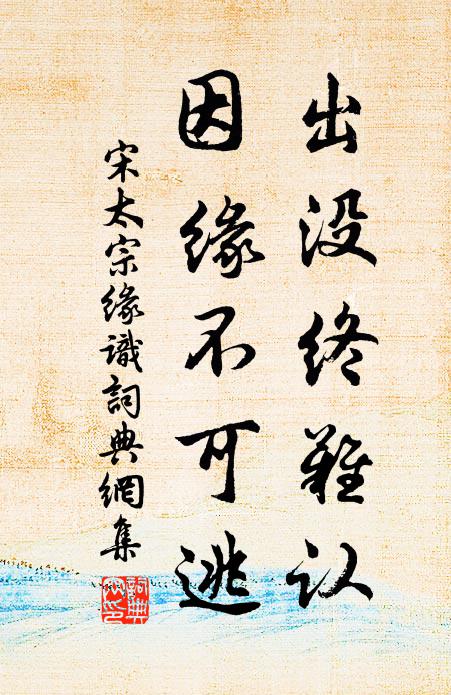 出没终难认
因缘不可逃
宋太宗缘識詞典網集